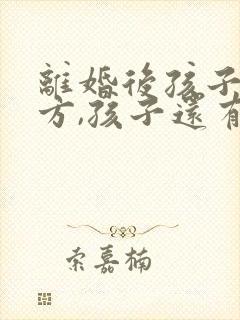 離婚後孩子
方,孩子還有
索嘉楠